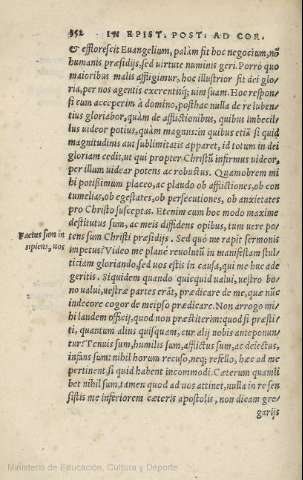 352 IN EPIST: POST: AD COR.
& efflorescit Euangelium, palàm fit hoc negocium, nō
humanis præsidijs, sed uirtute numinis geri. Porrò quo
maioribus malis affligimur, hoc illustrior fit dei glo-
ria, per nos agentis exerentisq; uim suam. Hoc respon-
si cum acceperim à domino, posthac nulla de re luben-
tius gloriabor, quàm de afflictionibus, quibus imbecil-
lus uideor potius, quàm magnus: in quibus etiā si quid
magnitudinis aut sublimitatis apparet, id totum in dei
gloriam cedit, ut qui propter Christū infirmus uideor,
per illum uidear potens ac robustus. Quamobrem mi
hi potissimùm placeo, ac plaudo ob afflictiones, ob con
tumelias, ob egestates, ob persecutiones, ob anxietates
pro Christo susceptas. Etenim cum hoc modo maxime
destitutus sum, ac meis diffidens opibus, tum uere po-
Factus sum in tens sum Christi præsidijs. Sed quò me rapit sermonis
sipiens, uos impetus? Video me planè reuolutū in manifestam stul
titiam gloriando, sed uos estis in causa, qui me huc ade
geritis. Siquidem quando quicquid ualui, uestro bo-
no ualui, uestræ partes erāt, prædicare de me, quæ nūc
indecore cogor de meipso prædicare. Non arrogo mi
hi laudem officij, quod non præstiterim: quod si præstì-
ti, quantum alius quisquam, cur alij nobis anteponun
tur? Tenuis sum, humilis sum, afflictus sum, ac deiectus,
infans sum: nihil horum recuso, neq; refello, hæc ad me
pertinent si quid habent incommodi. Cæterum quamli
bet nihil sum, tamen quod ad uos attinet, nulla in re sen
sistis me inferiorem cæteris apostolis, non dicam gre-
garijs
Ministerio de Educación, Cultura y Deporte